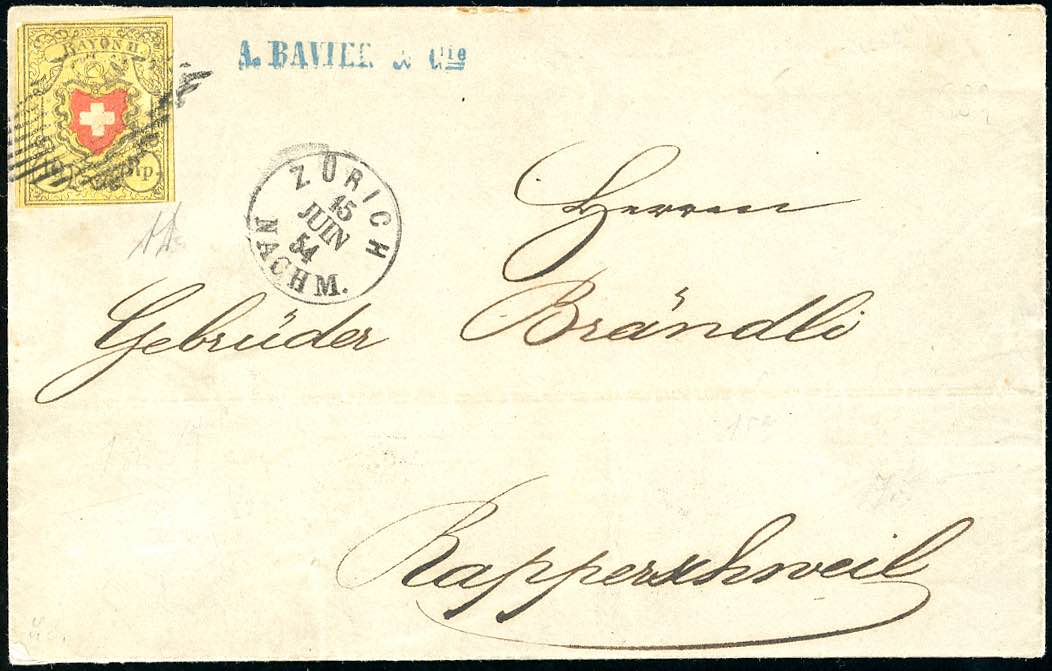 RAYON II.
10 Rp.
A. BAVIER & Cie
ZÜRICH
15
JUIN
54
NACHM.
Herren
Gebrüder Brändli
Rapperschweil